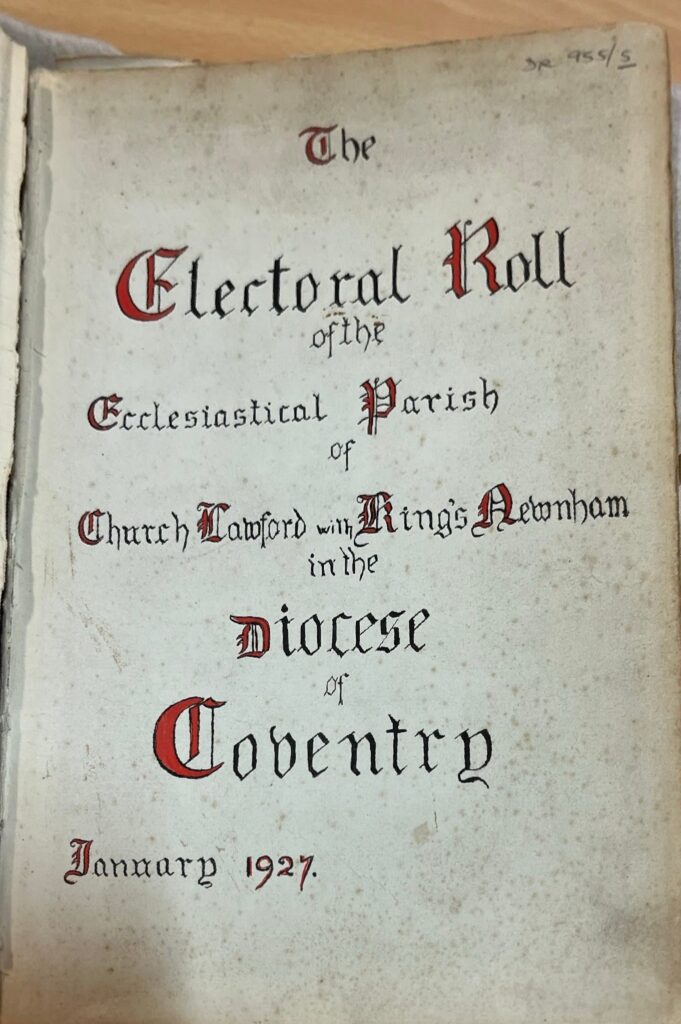 DR 955/5
The
Electoral Roll
of the
Ecclesiastical Parish
of
Church Lawford with King's Newnham
in the
Diocese
of
Coventry
January 1927.